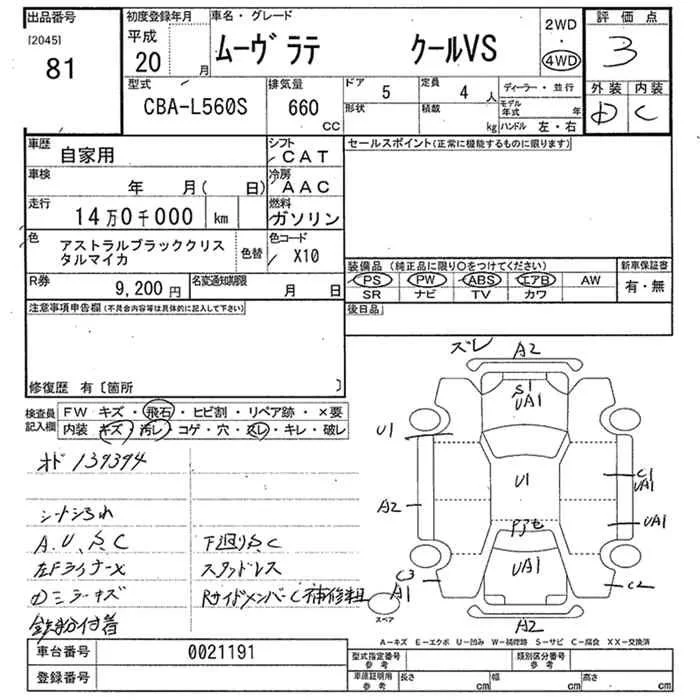 出品番号
[2045]
81
初度登録年月
平成
20
月
車名・グレード
ムーヴ ラテ クールVS
2WD
・
4WD
評価点
3
外装 内装
D C
型式
CBA-L560S
排気量
660
CC
ドア
5
形状
定員
4 人
積載
kg
ディーラー・並行
モデル
年式 年
ハンドル 左・右
車歴
自家用
シフト
CAT
車検
年 月( 日)
冷房
AAC
走行
14万0千000 km
燃料
ガソリン
色
アストラルブラッククリス
タルマイカ
色替
色コード
X10
R券
9,200 円
名変通知期限
月 日
セールスポイント(正常に機能するものに限ります)
装備品 (純正品に限り〇をつけてください)
PS PW ABS エアB AW
SR ナビ TV カワ
新車保証書
有・無
後日品
注意事項申告欄(不具合内容等は具体的に記入して下さい)
修復歴 有〔箇所 〕
検査員
記入欄
FW キズ・飛石・ヒビ割・リペア跡・×要
内装 キズ・汚レ・コゲ・穴・スレ・キレ・破レ
オド 139394
A.U.
下廻り
スタッドレス
Dミラーキズ
RサイドメンバーC 補修粗
鉄粉付着
車台番号 0021191
登録番号
ズレ
A2
S1
UA1
U1
U1
C1
UA1
A2
UA1
UA1
C3
A1
C2
A2
スペア
A-キズ E-エクボ U-凹み W-補修跡 S-サビ C-腐食 XX-交換済
型式指定番号
参考
類別区分番号
参考
車庫証明用
参考
長さ cm 幅 cm 高さ cm